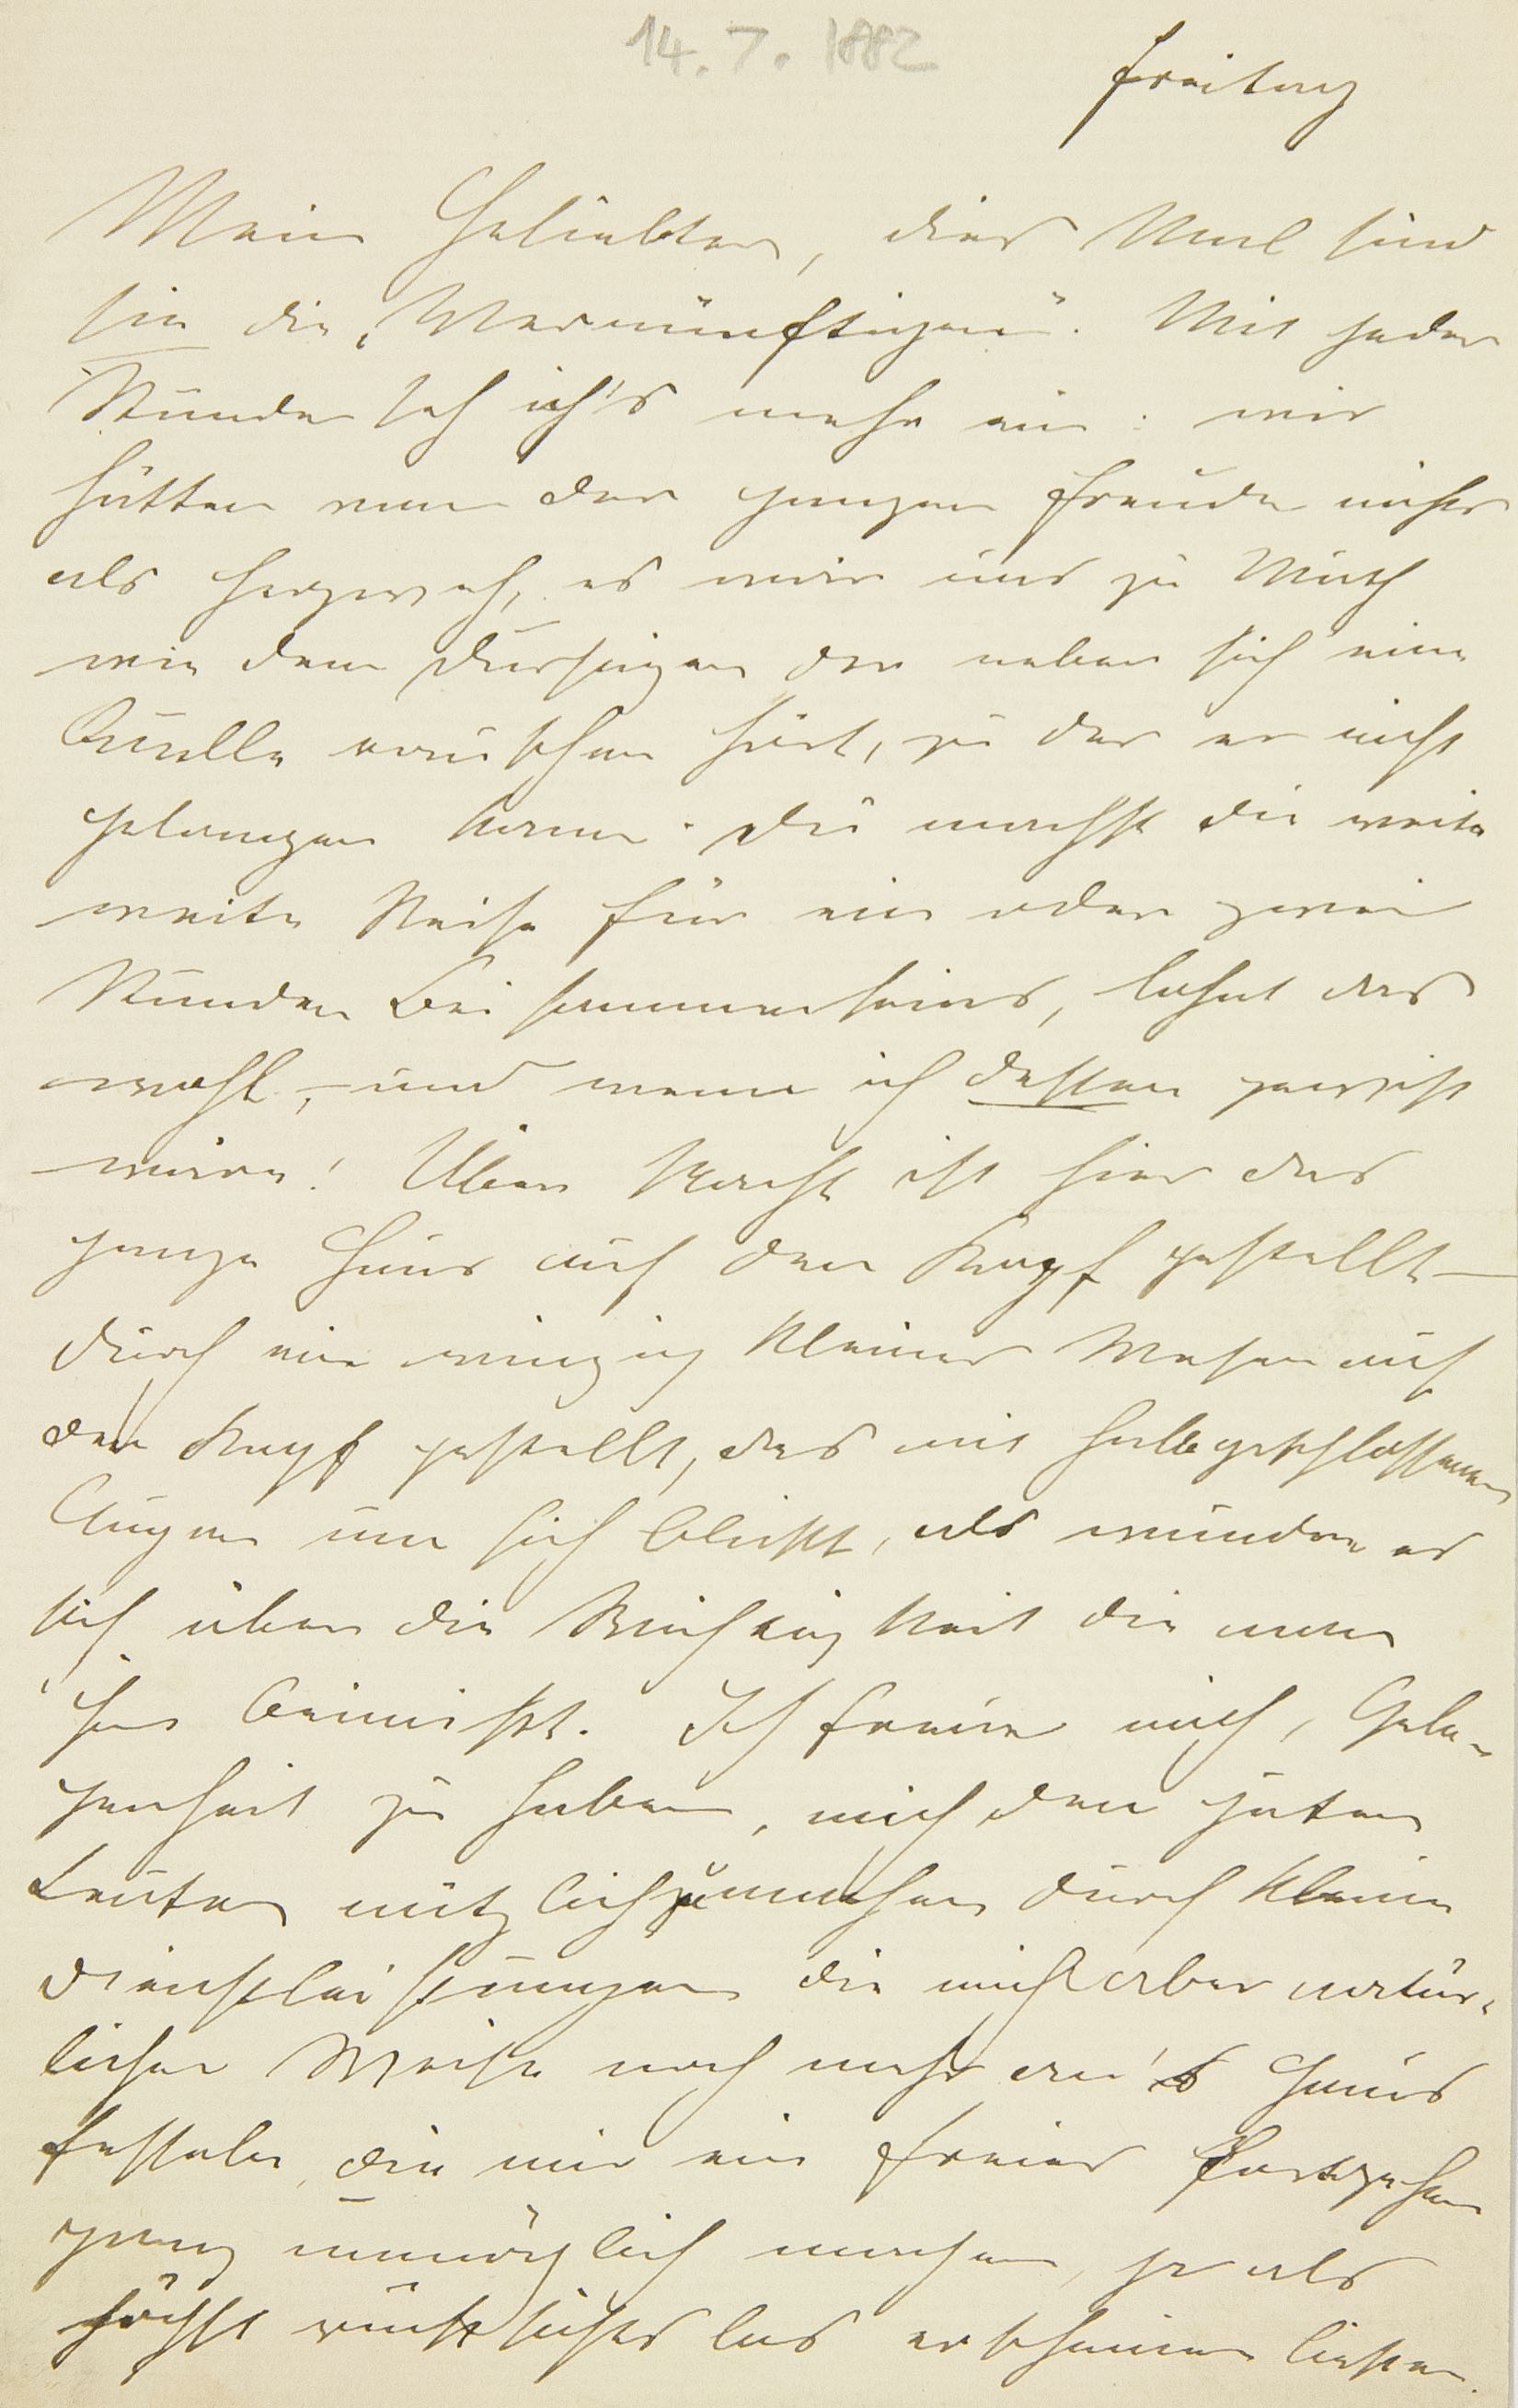 14. 7. 1882
Freitag
Mein Geliebter, dies Mal sind
sie die „Vernünftigen". Mit jeder
Stunde seh ich's mehr ein: wir
hätten von der ganzen Freude nichts
als Herzweh, es wär uns zu Muth
wie dem Durstigen der neben sich eine
Quelle rauschen hört, zu der er nicht
gelangen kann. Du machst die weite
weite Reise für ein oder zwei
Stunden Beisammenseins, lohnt das
wohl, – und wenn ich dessen gewiß
wäre! Über Nacht ist hier das
ganze Haus auf den Kopf gestellt –
durch ein winzig kleines Wesen auf
den Kopf gestellt, das mit halbgeschlossenen
Augen um sich blickt, als wundre es
sich über die Wichtigkeit die man
ihm beimißt. Ich freue mich, Gele-
genheit zu haben, mich den guten
Leuten nützlich zu machen durch kleine
Dienstleistungen die mich aber natür-
licher Weise noch mehr an's Haus
fesseln, die mir ein freies Fortgehen
ganz unmöglich machen, ja als
höchst rücksichtslos erscheinen ließen.